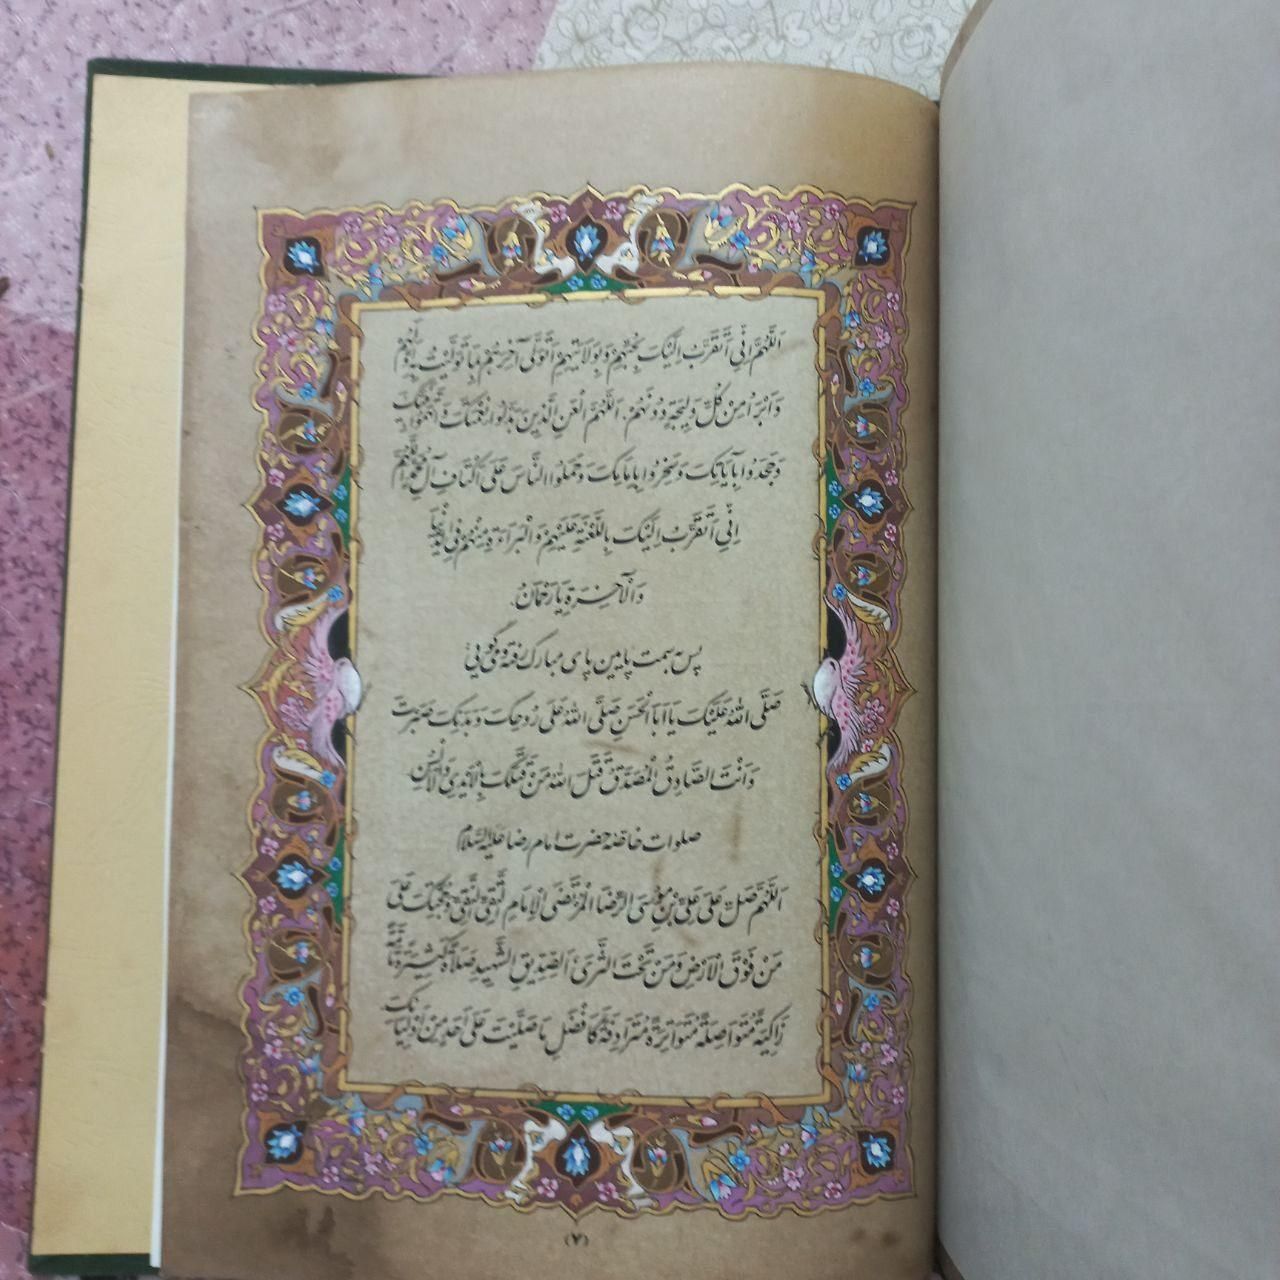 اَللّٰهُمَّ اِنّی اَتَقَرَّبُ اِلَیْکَ بِحُبِّهِمْ وَبِوِلَایَتِهِمْ اَتَوَلّٰی آخِرَهُمْ بِمَا تَوَلَّیْتُ بِهِ اَوَّلَهُمْ
وَاَبْرَاُ مِنْ کُلِّ وَلِیجَةٍ دُونَهُمْ. اَللّٰهُمَّ الْعَنِ الَّذِینَ بَدَّلُوا نِعْمَتَکَ وَاتَّهَمُوا نَبِیَّکَ
وَجَحَدُوا بِآیَاتِکَ وَسَخِرُوا بِاِمَامِکَ وَحَمَلُوا النَّاسَ عَلٰی اَکْتَافِ آلِ مُحَمَّدٍ اَللّٰهُمَّ
اِنّی اَتَقَرَّبُ اِلَیْکَ بِاللَّعْنَةِ عَلَیْهِمْ وَالْبَرَاءَةِ مِنْهُمْ فِی الدُّنْیَا
وَالْآخِرَةِ یَا رَحْمَانُ.
پس به سمت پایین پای مبارک رفته و می‌گویی
صَلَّی اللهُ عَلَیْکَ یَا اَبَا الْحَسَنِ صَلَّی اللهُ عَلٰی رُوحِکَ وَبَدَنِکَ صَبَرْتَ
وَاَنْتَ الصَّادِقُ الْمُصَدَّقُ قَتَلَ اللهُ مَنْ قَتَلَکَ بِالْاَیْدِی وَالْاَلْسُنِ.
صلوات خاصّه حضرت امام رضا علیه السّلام
اَللّٰهُمَّ صَلِّ عَلٰی عَلِیِّ بْنِ مُوسَی الرِّضَا الْمُرْتَضَی الْاِمَامِ التَّقِیِّ النَّقِیِّ وَحُجَّتِکَ عَلٰی
مَنْ فَوْقَ الْاَرْضِ وَمَنْ تَحْتَ الثَّرٰی اَلصِّدِّیقِ الشَّهِیدِ صَلَاةً کَثِیرَةً تَامَّةً
زَاکِیَةً مُتَوَاصِلَةً مُتَوَاتِرَةً مُتَرَادِفَةً کَاَفْضَلِ مَا صَلَّیْتَ عَلٰی اَحَدٍ مِنْ اَوْلِیَائِکَ.
(۷)